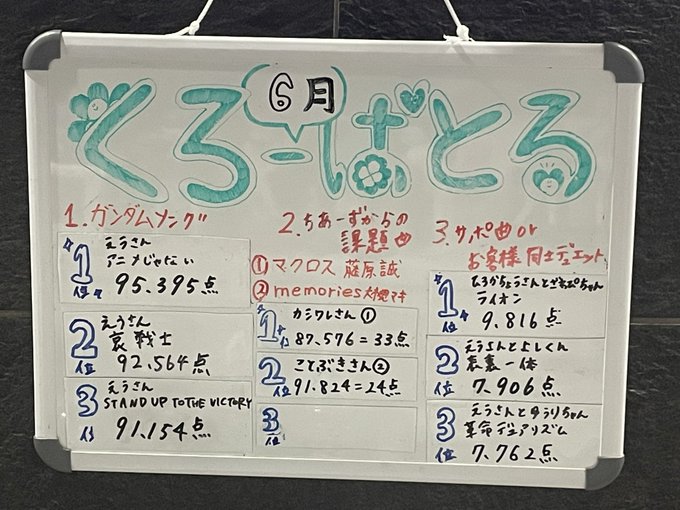 6月
くろーばとる
1. ガンダムソング
1位
えうさん
アニメじゃない
95.395点
2位
えうさん
哀戦士
92.564点
3位
えうさん
STAND UP TO THE VICTORY
91.154点
2. ちあーずからの
課題曲
①マクロス 藤原誠
②memories 大槻マキ
1位
カミワレさん①
87.576=33点
2位
ことぶきさん②
91.824=24点
3位
3. サッポ曲or
お客様同士デュエット
1位
ライオン
9.816点
2位
えうさんとよしくん
表裏一体
7.906点
3位
えうさんとゆうりちゃん
革命デュアリズム
7.762点